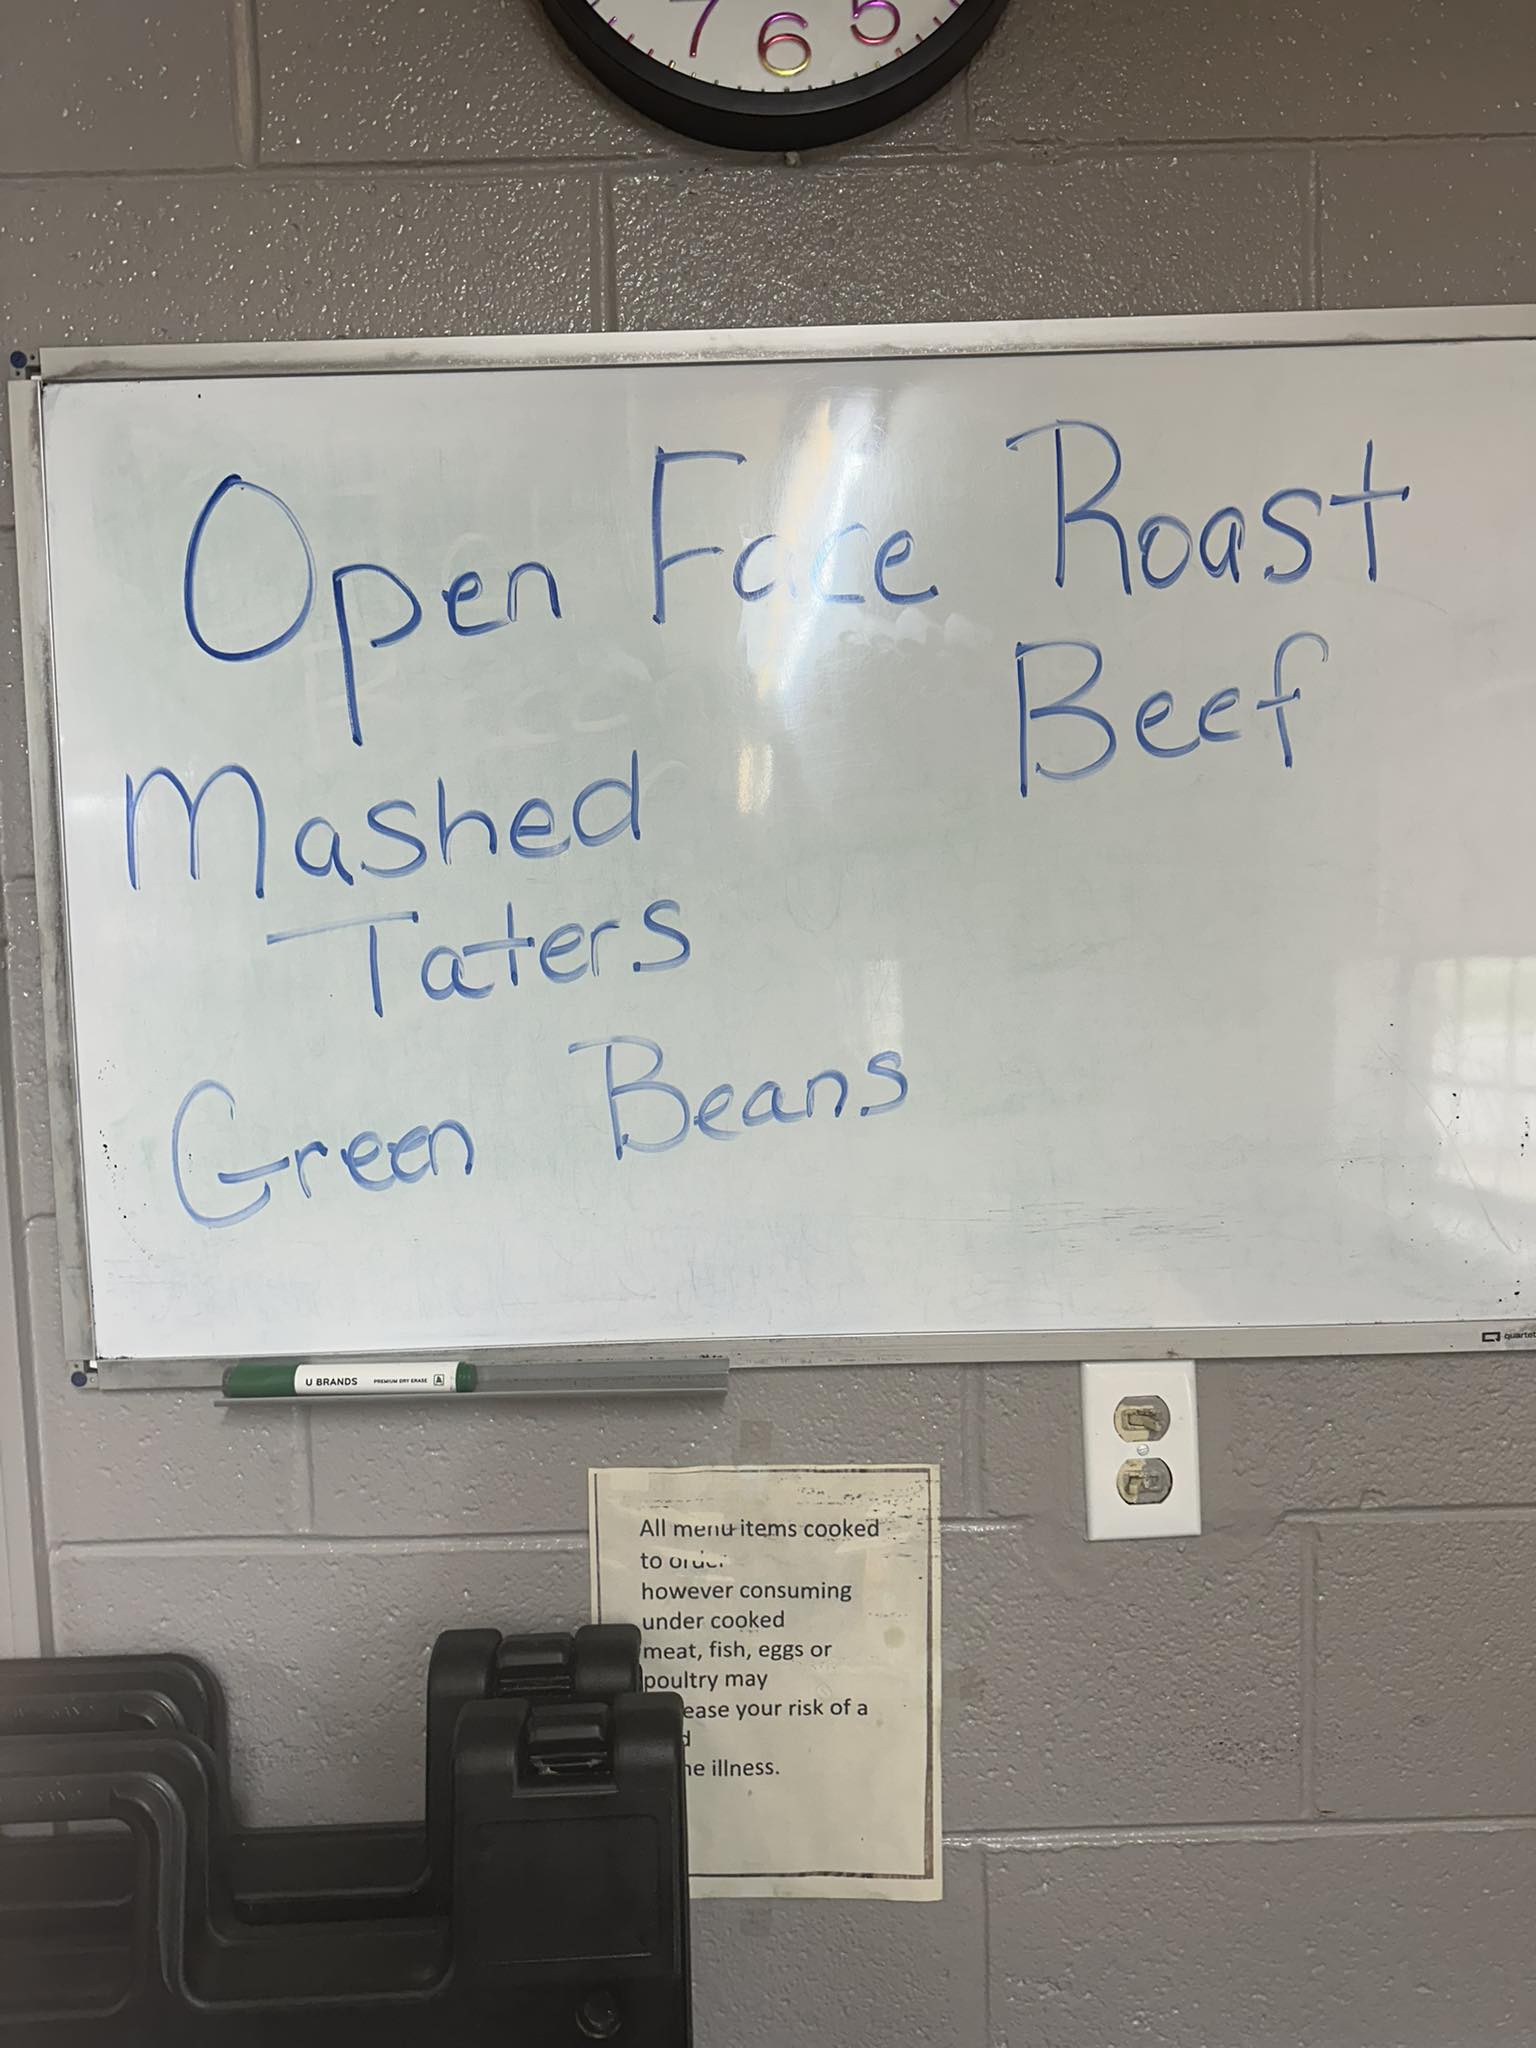 7 6 5
Open Face Roast
Beef
Mashed
Taters
Green Beans
quartet
U BRANDS PREMIUM DRY ERASE A
All menu items cooked
to
however consuming
under cooked
meat, fish, eggs or
poultry may
ease your risk of a
d
ne illness.